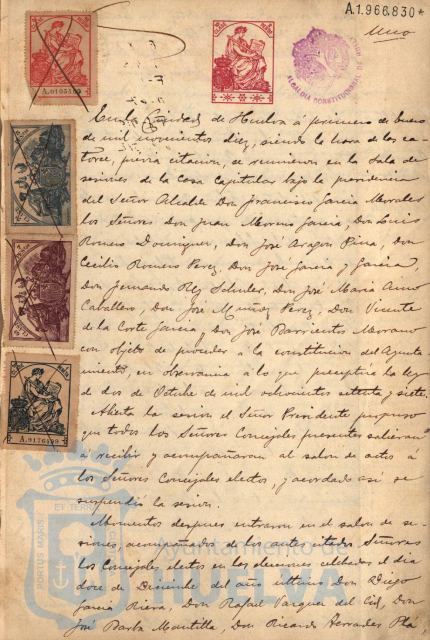 A.1.966.830*
Uno
ALCALDIA CONSTITUCIONAL DE HUELVA
A.0105509
A.9176499
En la Ciudad de Huelva á primero de Enero
de mil novecientos diez, siendo la hora de las ca-
torce, previa citación, se reunieron en la Sala de
sesiones de la Casa Capitular bajo la presidencia
del Señor Alcalde Don Francisco Garcia Morales
los Señores Don Juan Moreno Garcia, Don Luis
Romero Dominguez, Don José Aragon Pina, Don
Cecilio Romero Perez, Don José Garcia y Garcia,
Don Fernando Rey Schuler, Don José Maria Amo
Caballero, Don José Muñoz Perez, Don Vicente
de la Corte Garcia y Don José Barrientos Morano
con objeto de proceder a la constitución del Ayunta-
miento, en observancia a lo que preceptua la ley
de dos de Octubre de mil ochocientos setenta y siete.
Abierta la sesion el Señor Presidente propuso
que todos los Señores Concejales presentes salieran
á recibir y acompañaran al salon de actos á
los Señores Concejales electos, y acordado asi se
suspendió la sesion.
Momentos despues entraron en el salon de se-
siones, acompañados de los antes citados Señores
los Concejales electos en las elecciones celebradas el dia
doce de Diciembre del año último Don Diego
Garcia Riera, Don Rafael Vazquez del Cid, Don
José Barba Mantilla, Don Ricardo Hernandez Plá
ET TERRÆ
PORTUS MARIS
Ayuntamiento de
HUELVA